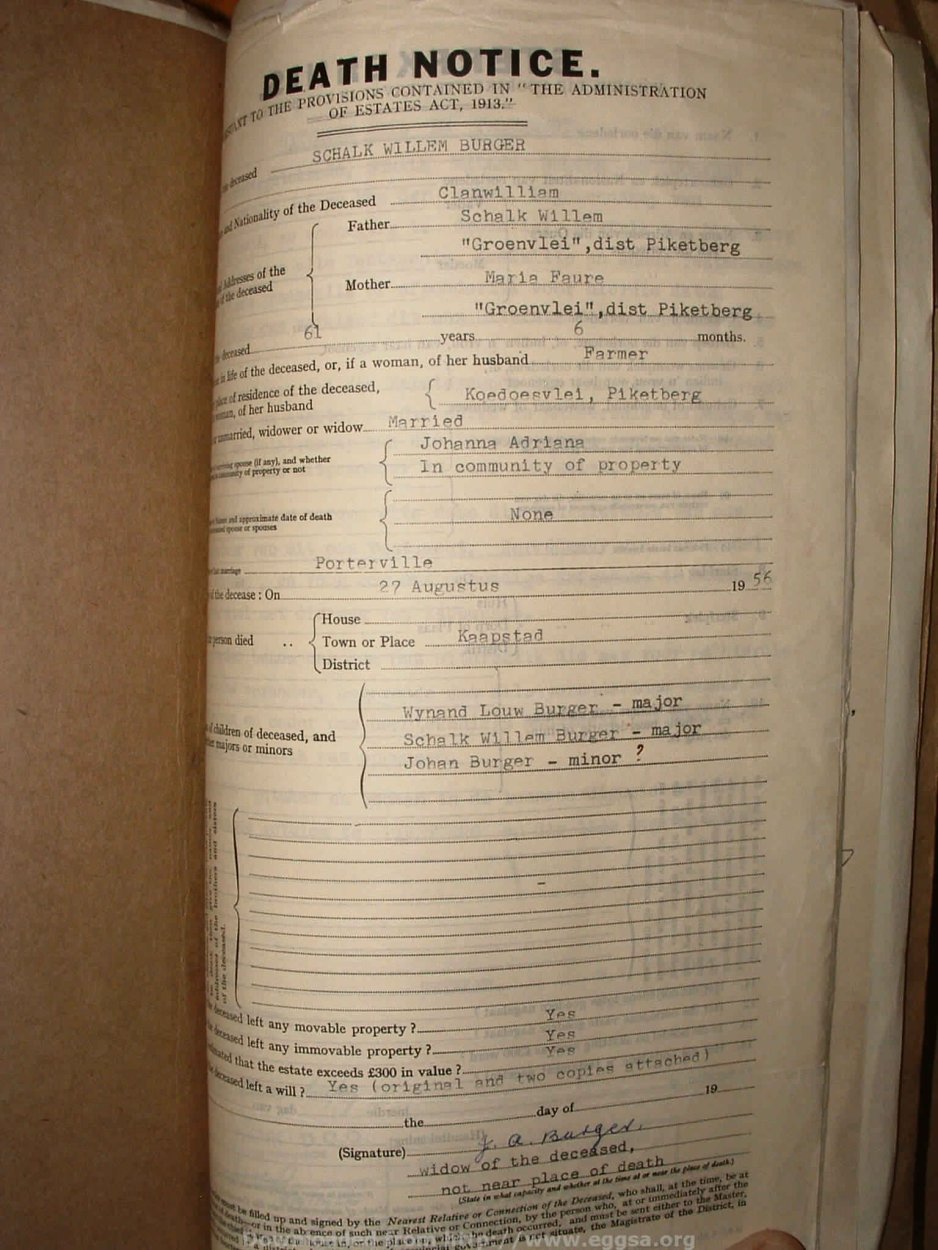 DEATH NOTICE.
TO THE PROVISIONS CONTAINED IN "THE ADMINISTRATION
OF ESTATES ACT, 1913."
deceased SCHALK WILLEM BURGER
and Nationality of the Deceased Clanwilliam
Father Schalk Willem
"Groenvlei",dist Piketberg
Addresses of the
of the deceased
Mother Maria Faure
"Groenvlei",dist Piketberg
deceased 61 years 6 months.
in life of the deceased, or, if a woman, of her husband Farmer
place of residence of the deceased,
woman, of her husband
Koedoesvlei, Piketberg
unmarried, widower or widow Married
spouse (if any), and whether
community of property or not
Johanna Adriana
In community of property
and approximate date of death
spouse or spouses
None
marriage Porterville
the decease : On 27 Augustus 19 56
House
person died .. Town or Place Kaapstad
District
of children of deceased, and
majors or minors
Wynand Louw Burger - major
Schalk Willem Burger - major
Johan Burger - minor ?
-
of the brothers and sisters
of the deceased.
deceased left any movable property ? Yes
deceased left any immovable property ? Yes
that the estate exceeds £300 in value ? Yes
deceased left a will ? Yes (original and two copies attached)
the day of 19
(Signature) J. A. Burger.
widow of the deceased,
not near place of death
(State in what capacity and whether at the time at or near the place of death.)
must be filled up and signed by the Nearest Relative or Connection of the Deceased, who shall, at the time, be at
death—or in the absence of such near Relative or Connection, by the person who, at or immediately after the
death occurred, and must be sent either to the Master,
situate, the Magistrate of the District, in
www.eggsa.org